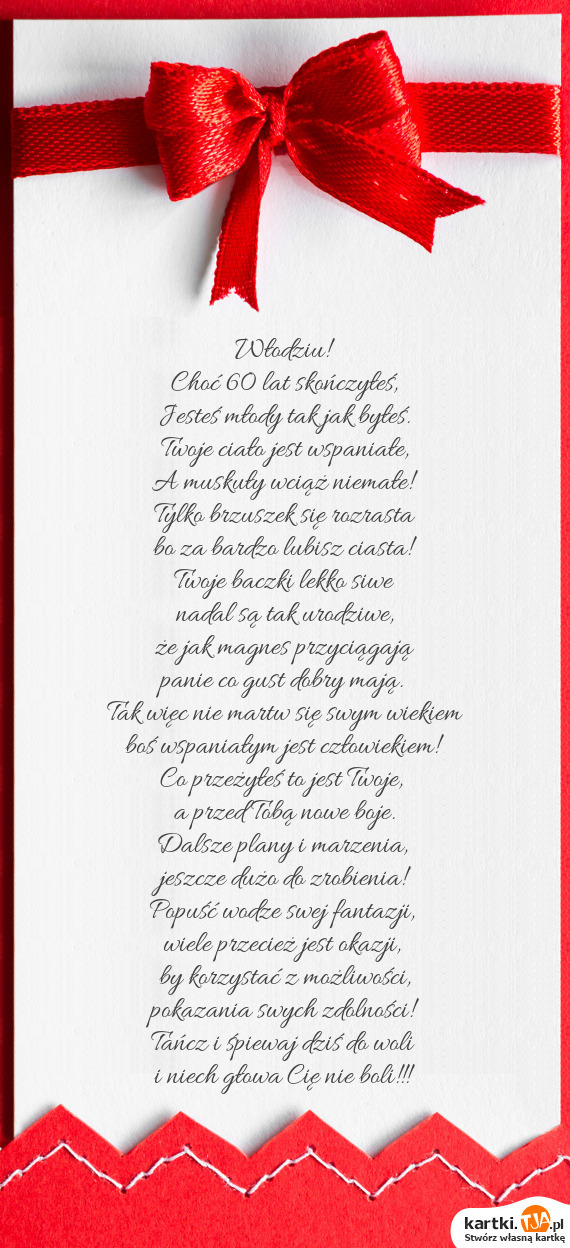 Włodziu!
Choć 60 lat skończyłeś,
Jesteś młody tak jak byłeś.
Twoje ciało jest wspaniałe,
A muskuły wciąż niemałe!
Tylko brzuszek się rozrasta
bo za bardzo lubisz ciasta!
Twoje baczki lekko siwe
nadal są tak urodziwe,
że jak magnes przyciągają
panie co gust dobry mają.
Tak więc nie martw się swym wiekiem
boś wspaniałym jest człowiekiem!
Co przeżyłeś to jest Twoje,
a przed Tobą nowe boje.
Dalsze plany i marzenia,
jeszcze dużo do zrobienia!
Popuść wodze swej fantazji,
wiele przecież jest okazji,
by korzystać z możliwości,
pokazania swych zdolności!
Tańcz i śpiewaj dziś do woli
i niech głowa Cię nie boli!!!
kartki.TJA.pl
Stwórz własną kartkę